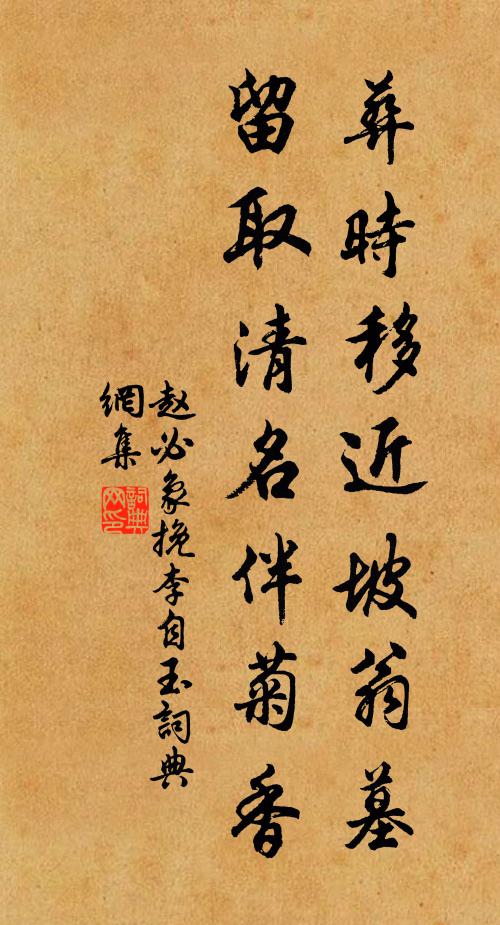 葬時移近坡翁墓
留取清名伴菊香
赵必象挽李自玉詞典
網集
詞典
网印